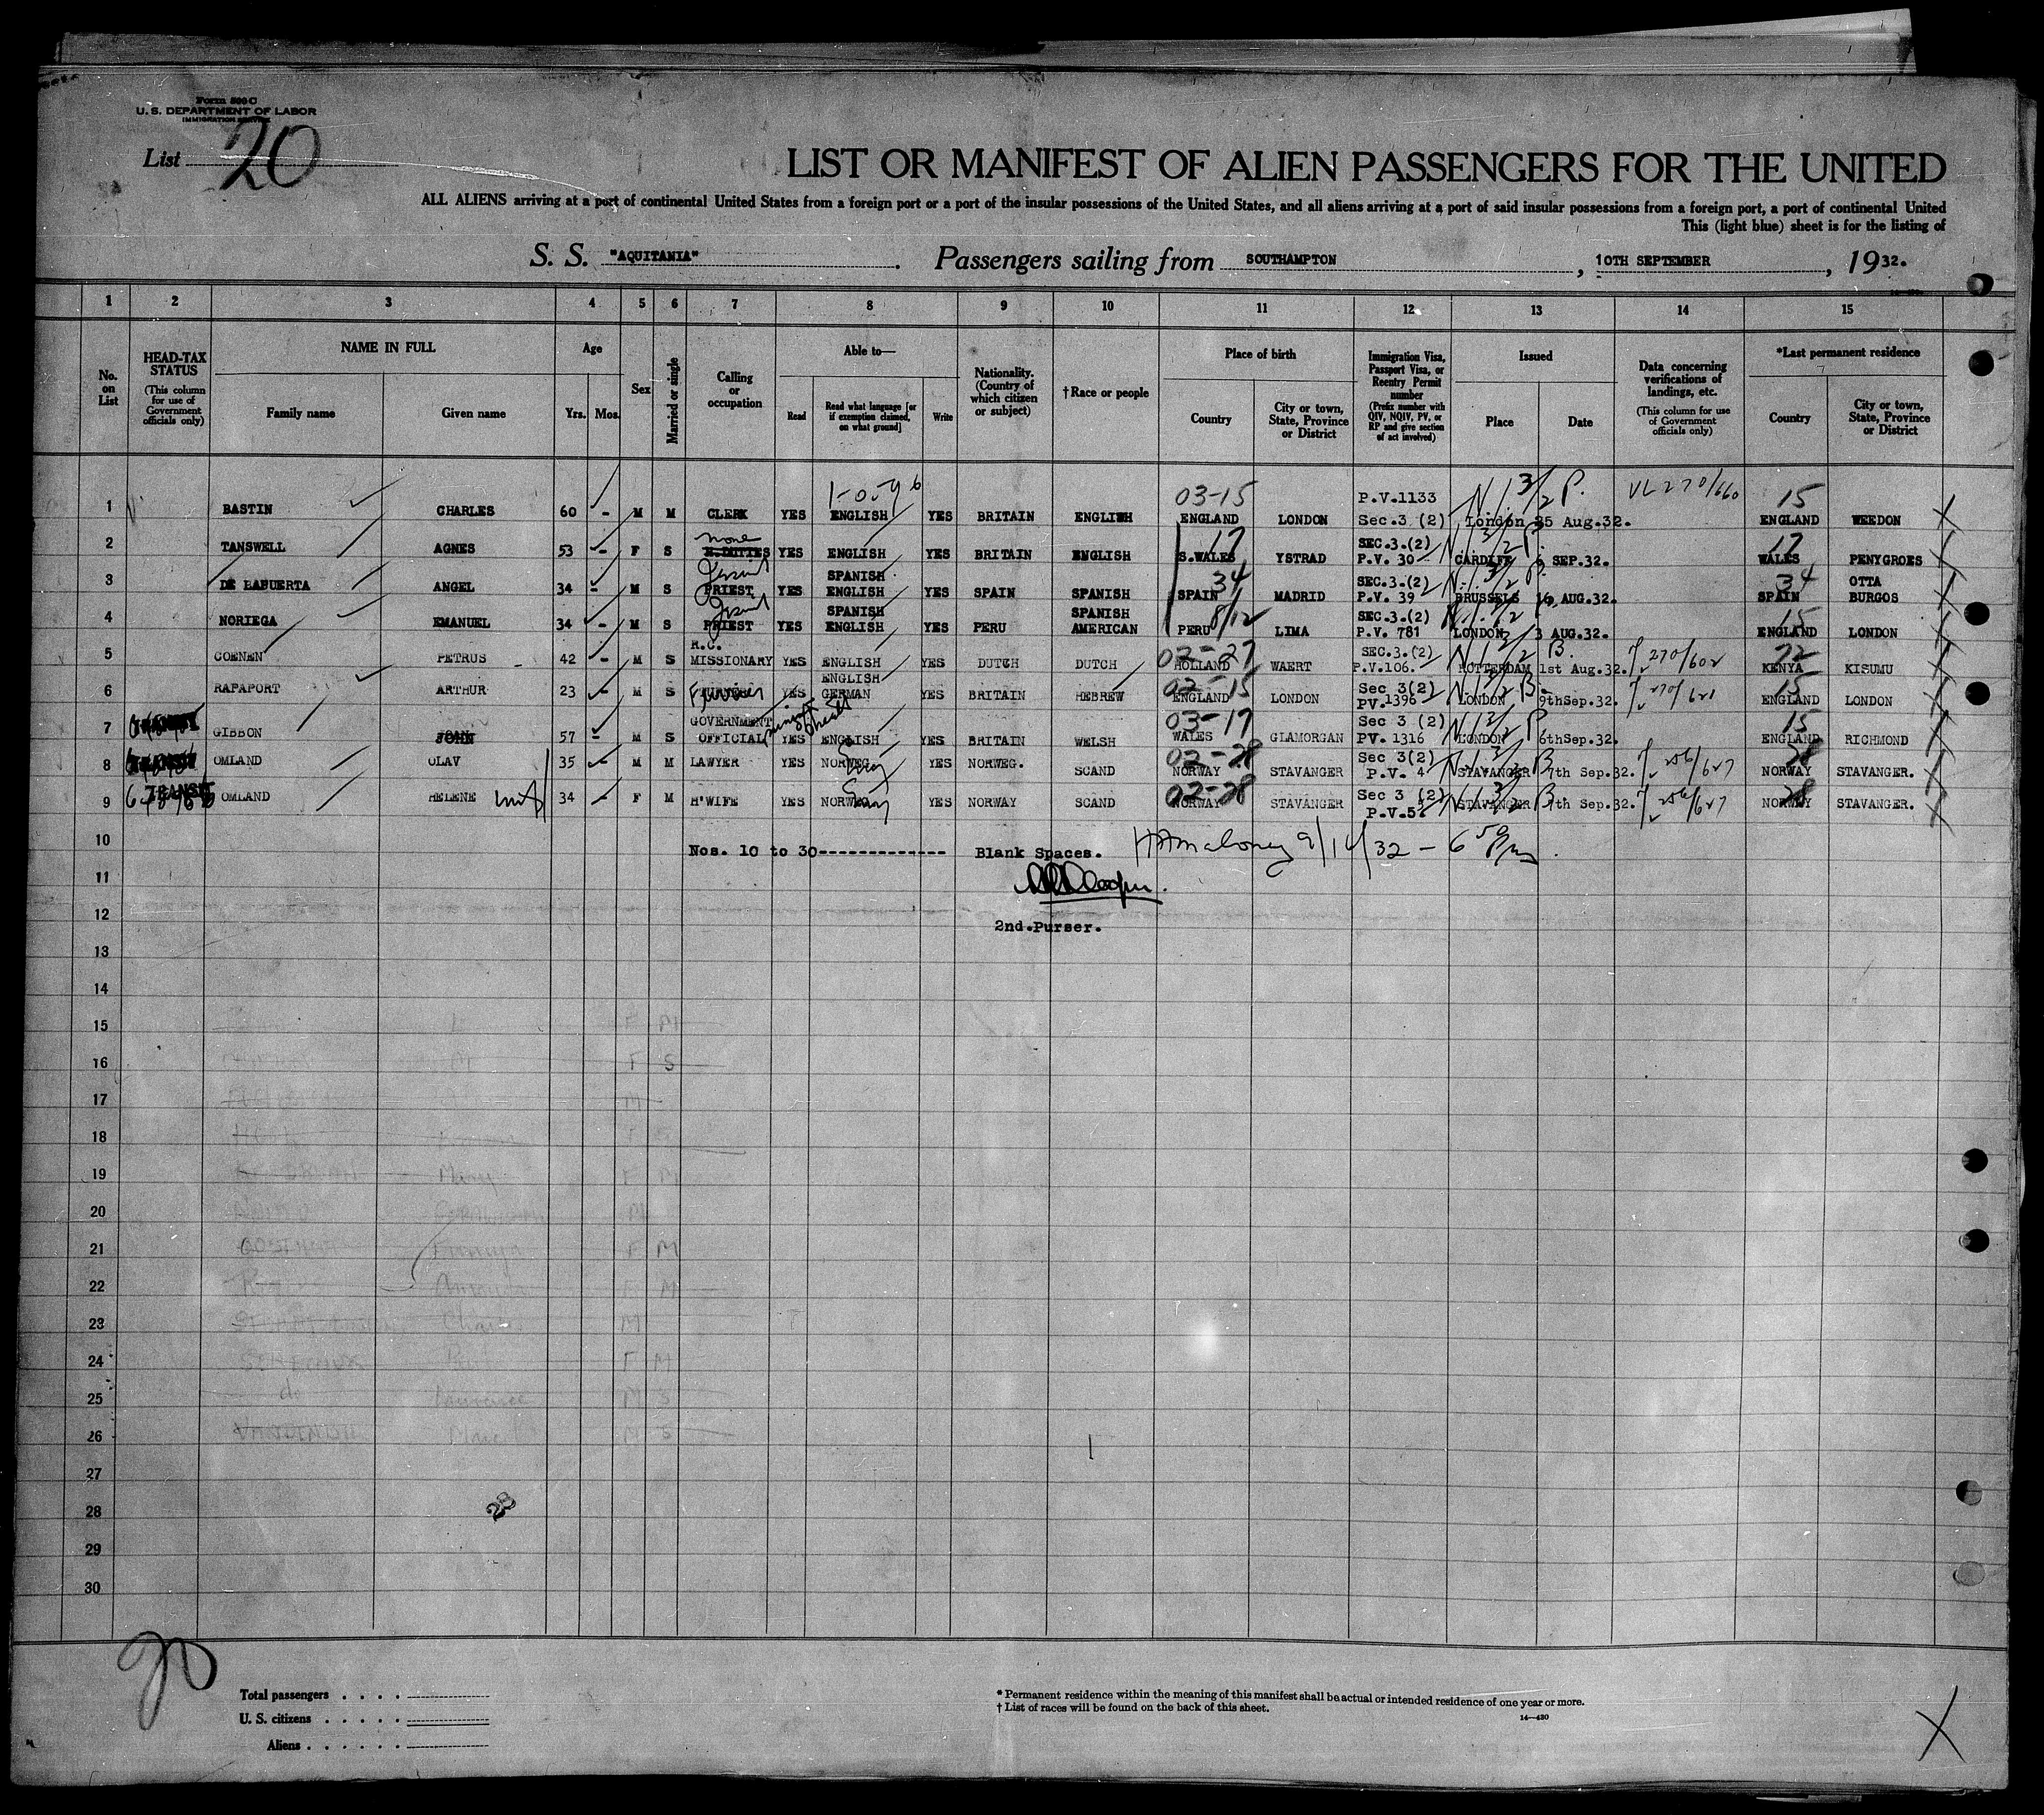 Form 500 C
U. S. DEPARTMENT OF LABOR
IMMIGRATION SERVICE
List 20
LIST OR MANIFEST OF ALIEN PASSENGERS FOR THE UNITED
ALL ALIENS arriving at a port of continental United States from a foreign port or a port of the insular possessions of the United States, and all aliens arriving at a port of said insular possessions from a foreign port, a port of continental United
This (light blue) sheet is for the listing of
S. S. "AQUITANIA" . Passengers sailing from SOUTHAMPTON , 10TH SEPTEMBER , 1932.
1 2 3 4 5 6 7 8 9 10 11 12 13 14 15
No. on List
HEAD-TAX STATUS
(This column for use of Government officials only)
NAME IN FULL
Family name
Given name
Age
Yrs. Mos.
Sex
Married or single
Calling or occupation
Able to—
Read
Read what language [or if exemption claimed, on what ground]
Write
Nationality. (Country of which citizen or subject)
† Race or people
Place of birth
Country
City or town, State, Province or District
Immigration Visa, Passport Visa, or Reentry Permit number
(Prefix number with QIV, NQIV, PV, or RP and give section of act involved)
Issued
Place
Date
Data concerning verifications of landings, etc.
(This column for use of Government officials only)
*Last permanent residence
Country
City or town, State, Province or District
03-15 P.V.1133 15
1 BASTIN CHARLES 60 - M M CLERK YES ENGLISH YES BRITAIN ENGLISH ENGLAND LONDON Sec.3 (2) London 25 Aug.32. ENGLAND WEEDON
none 17 SEC.3.(2) 17
2 TANSWELL AGNES 53 - F S H.DUTIES YES ENGLISH YES BRITAIN ENGLISH S.WALES YSTRAD P.V. 30 CARDIFF SEP.32. WALES PENYGROES
Jesuit SPANISH 34 SEC.3.(2) 34 OTTA
3 DE LAPUERTA ANGEL 34 - M S PRIEST YES ENGLISH YES SPAIN SPANISH SPAIN MADRID P.V. 39 BRUSSELS AUG.32. SPAIN BURGOS
Jesuit SPANISH SPANISH 8/12 SEC.3.(2) 15
4 NORIEGA EMANUEL 34 - M S PRIEST YES ENGLISH YES PERU AMERICAN PERU LIMA P.V. 781 LONDON 3 AUG.32. ENGLAND LONDON
R.C. 02-27 SEC.3.(2) 72
5 COENEN PETRUS 42 - M S MISSIONARY YES ENGLISH YES DUTCH DUTCH HOLLAND WAERT P.V.106. ROTTERDAM 1st Aug.32. KENYA KISUMU
ENGLISH 02-15 Sec 3(2) 15
6 RAPAPORT ARTHUR 23 - M S YES GERMAN YES BRITAIN HEBREW ENGLAND LONDON PV.1396 LONDON 9thSep.32. ENGLAND LONDON
GOVERNMENT 03-17 Sec 3 (2) 15
7 GIBBON JOHN 57 - M S OFFICIAL YES ENGLISH YES BRITAIN WELSH WALES GLAMORGAN PV. 1316 LONDON 6thSep.32. ENGLAND RICHMOND
02-28 Sec 3(2) 28
8 OMLAND OLAV 35 - M M LAWYER YES NORWEG. YES NORWEG. SCAND NORWAY STAVANGER P.V. 4 STAVANGER 7th Sep.32. NORWAY STAVANGER.
TRANSIT 02-28 Sec 3 (2) 28
9 OMLAND HELENE 34 - F M H'WIFE YES NORWEG YES NORWAY SCAND NORWAY STAVANGER P.V.5 STAVANGER 7th Sep.32. NORWAY STAVANGER.
10 Nos. 10 to 30------------- Blank Spaces. 9/14/32
11
12
2nd.Purser.
13
14
15
16
17
18
19
20
21
22
23
24
25
26
27
28
29
30
20
Total passengers . . . .
U. S. citizens . . . . .
Aliens . . . . . .
* Permanent residence within the meaning of this manifest shall be actual or intended residence of one year or more.
† List of races will be found on the back of this sheet.
14—430